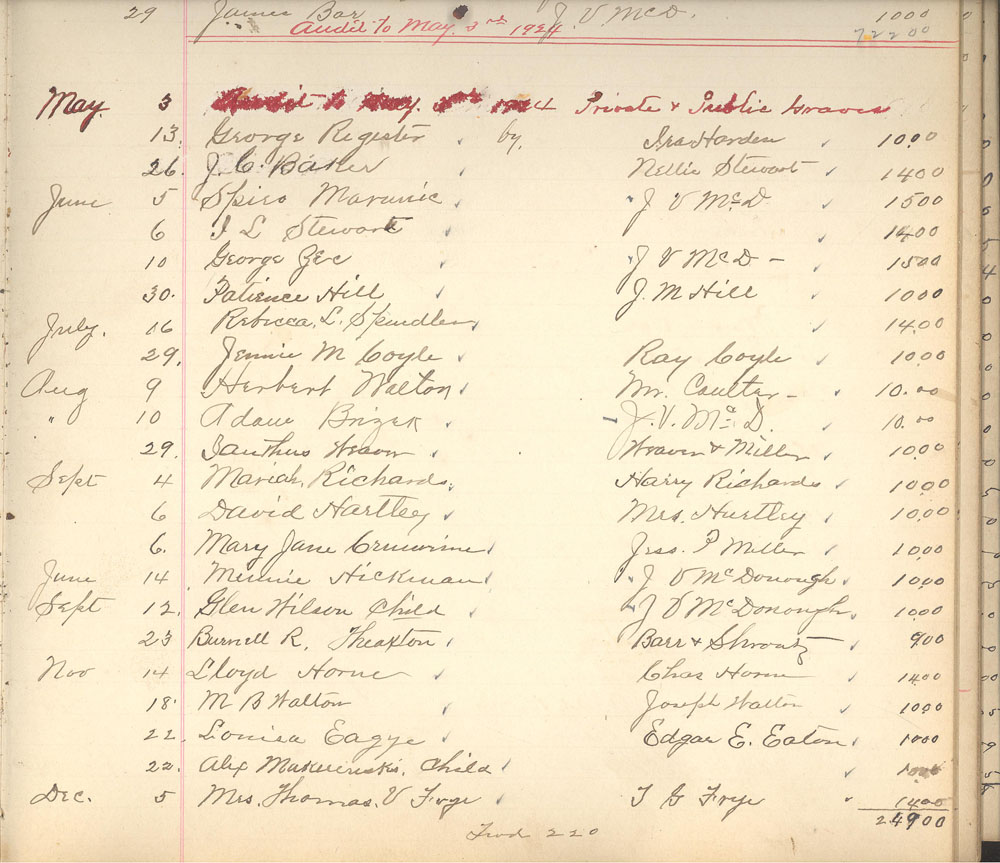 29 James Bar J V McD. 1000
Audit to May. 3rd 1924 72200
May. 3 Audit to May. 3rd 1924 Private & Public Graves
13. George Register by, Ira Harden 1000
26. J. C. Baker Nellie Stewart 1400
June 5 Spiro Marunic " J V McD 1500
6 I L Stewart 1400
10 George Zec " J V McD - 1500
30. Patience Hill J. M Hill 1000
July. 16 Rebecca. L. Spindler 1400
29. Jennie M Coyle Ray Coyle 1000
Aug 9 Herbert Walton Mr. Coulter - 10.00
" 10 Adam Brizek J. V. McD. 10.00
29. Ianthus Weaver Weaver & Miller 1000
Sept 4 Mariah. Richards. Harry Richards 1000
6 David Hartley Mrs. Hartley 1000
6. Mary Jane Jess. P Miller 1000
June 14 Minnie Hickman " J V McDonough 1000
Sept 12. Glen Wilson Child J V McDonough 1000
23 Burnell R. Theaxton Barr & 900
Nov 14 Lloyd Horne Chas Horne 1400
18. M B Walton Joseph Walton 1000
22. Louisa Eagye Edgar E. Eaton 1000
22. Alex Child 1000
Dec. 5 Mrs. Thomas. V Frye T G Frye 1400
24900
Fwd 220